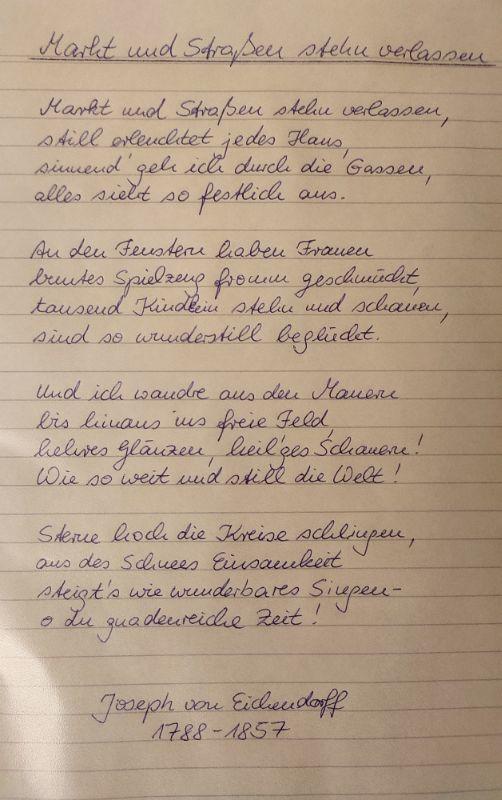 Markt und Straßen stehn verlassen
Markt und Straßen stehn verlassen,
still erleuchtet jedes Haus,
sinnend geh ich durch die Gassen,
alles sieht so festlich aus.
An den Fenstern haben Frauen
buntes Spielzeug fromm geschmückt,
tausend Kindlein stehn und schauen,
sind so wunderstill beglückt.
Und ich wandre aus den Mauern
bis hinaus ins freie Feld,
hehres Glänzen, heil'ges Schauern!
Wie so weit und still die Welt!
Sterne hoch die Kreise schlingen,
aus des Schnees Einsamkeit
steigt's wie wunderbares Singen-
o du gnadenreiche Zeit!
Joseph von Eichendorff
1788-1857